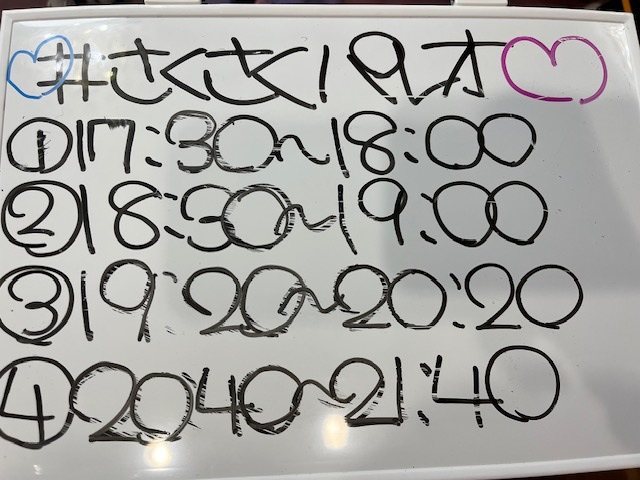 #さくさく19才
①17:30~18:00
②18:30~19:00
③19:20~20:20
④2040~21:40